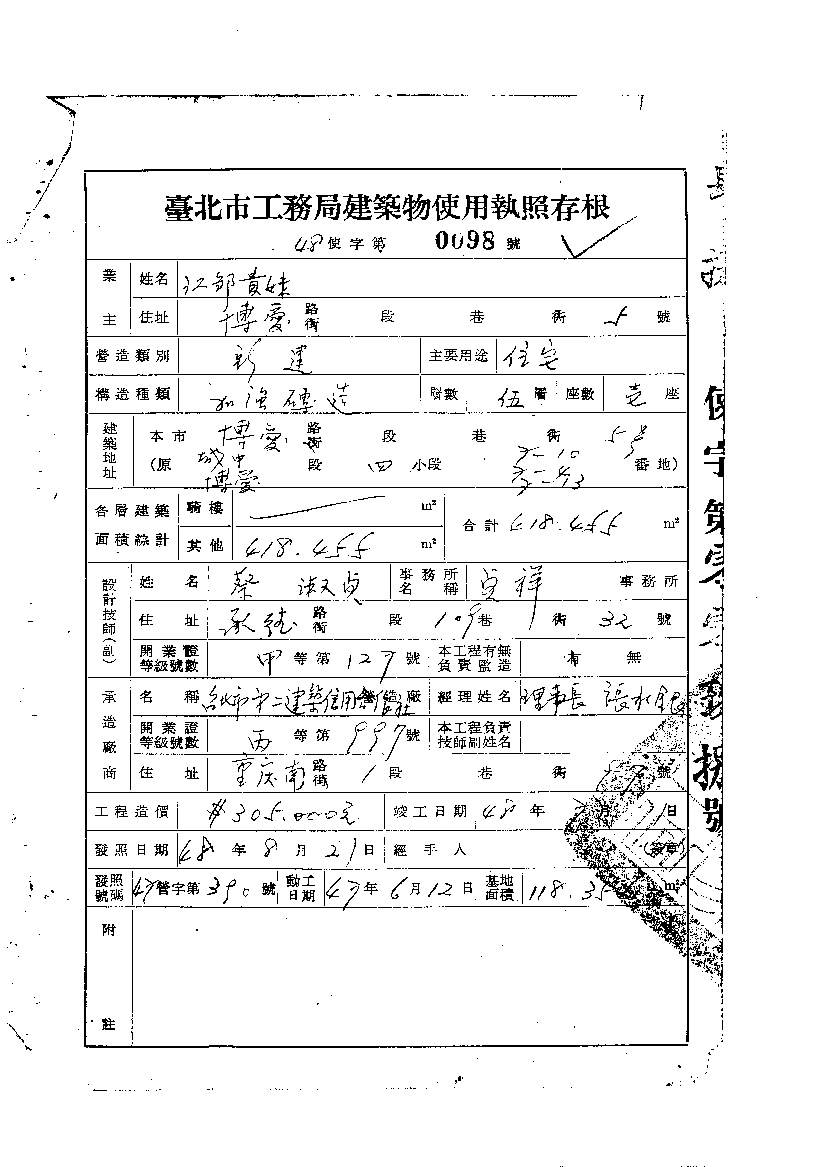 臺北市工務局建築物使用執照存根
48使字第 0098 號
業主 姓名 江鄒貴妹
住址 博愛 路街 段 巷 衖 5 號
營造類別 新建 主要用途 住宅
構造種類 加強磚造 層數 伍層 座數 壱座
建築地址 本市 博愛 路街 段 巷 衖 5号
(原 城中博愛 段 四 小段 番地)
各層建築面積綜計 騎樓 m² 合計 418.455 m²
其他 418.455 m²
設計技師(副) 姓名 蔡淑貞 事務所名稱 貞祥 事務所
住址 承德 路街 段 109巷 衖 32 號
開業證等級號數 甲 等第 127 號 本工程有無負責監造 有 無
承造廠商 名稱 廠 經理姓名 理事長 張水銀
開業證等級號數 丙 等第 997 號 本工程負責技師副姓名
住址 重慶南 路街 1段 巷 衖 號
工程造價 $305,000元 竣工日期 48年 月 31日
發照日期 48年8月21日 經手人 (簽章)
發照號碼 47營字第390號 動工日期 47年6月12日 基地面積 118.35 m²
附註
使字第零零玖捌號